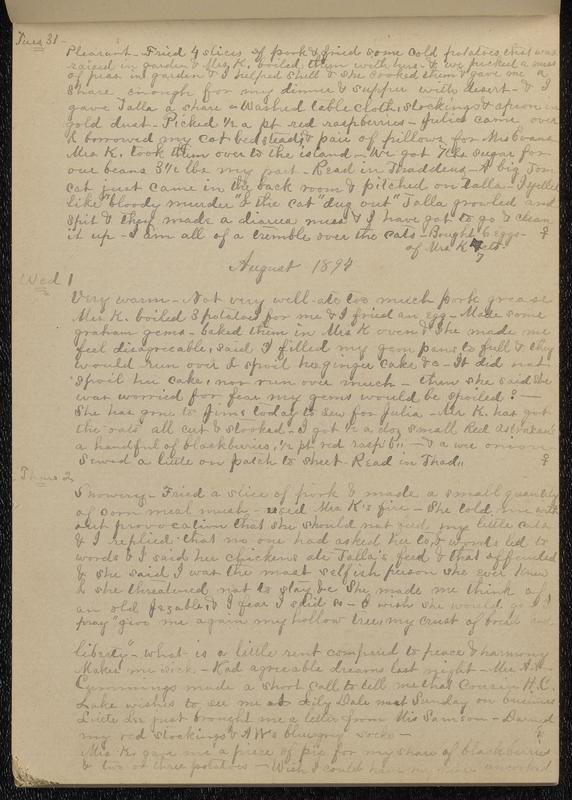 Tues 31 -
Pleasant - Fried 4 slices of pork & fried some cold potatoes, that was
raised in garden & Mrs K. boiled them with hers - & we picked a mess
of peas in garden & I helped shell & she cooked them & gave me a
share enough for my dinner & supper with desert - & I
gave Talla a share - Washed tablecloth, stockings & apron in
gold dust - Picked 1/2 a pt red raspberries - Julia came over
& borrowed my cot bedstead & pair of pillows for Mrs Evans
Mrs K. took them over to the island - We got 7 lbs sugar for
our beans 3 1/2 lbs my part - Read in Thaddeus - A big Tom
cat just came in the back room & pitched on Talla - I yelled
like "bloody murder" & the cat "dug out" Talla growled and
spit & they made a diarea mess & I have got to go & clean
it up - I am all of a tremble over the cats - Bought 6 eggs - ♀
of Mrs K cts
7
August 1894
Wed 1
Very warm - Not very well - ate too much pork grease
Mrs K. boiled 3 potatoes for me & I fried an egg - Made some
graham gems - baked them in Mrs K oven & she made me
feel disagreeable, said I filled my gem pans to full & they
would run over & spoil her ginger cake &c - It did not
spoil her cake, nor run over much - then she said she
was worried for fear my gems would be spoiled? -
She has gone to Jims today to sew for Julia - Mr K. has got
the oats all cut & stooked - I got 1/2 a doz small Red Astrakans
a handful of blackberries, 1/2 pt red raspb" - & a wee onion
Sewed a little on patch to sheet - Read in Thad" ♀
Thurs 2
Showery - Fried a slice of pork & made a small quantity
of corn meal mush - used Mrs K's fire - She told me with
out provocation that she should not feed my little cats
& I replied that no one had asked her to, & words led to
words & I said her chickens ate Talla's feed & that offended
& she said I was the most selfish person she ever knew
& she threatened not to stay &c She made me think of
an old Jezabel, & I fear I said so - I wish she would go & I
pray "give me again my hollow tree, my crust of bread and
liberty" - what is a little rent compared to peace & harmony
Makes me sick. - Had agreeable dreams last night - Mrs A.
Cummings made a short call to tell me that Cousin H.C.
Lake wishes to see me at Lily Dale next Sunday on business
Little just brought me a letter from Mis Samson - Darned
my red stockings & AW's blue gray socks -
Mrs K. gave me a piece of pie for my share of blackberries
& two or three potatoes - Wish I could have my